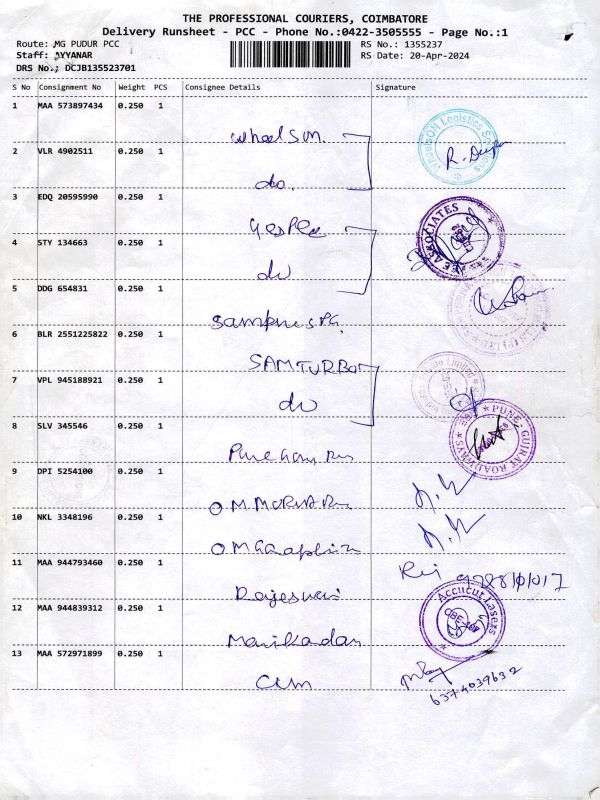 THE PROFESSIONAL COURIERS, COIMBATORE
Delivery Runsheet - PCC - Phone No.:0422-3505555 - Page No.:1
Route: MG PUDUR PCC
RS No.: 1355237
Staff: AYYANAR
RS Date: 20-Apr-2024
DRS No.; DCJB135523701
S No Consignment No Weight PCS Consignee Details Signature
1 MAA 573897434 0.250 1
wheelsun.
WheelsON Logistics Solutions
2 VLR 4902511 0.250 1
do.
3 EDQ 20595990 0.250 1
ASSOCIATES
4 STY 134663 0.250 1
do
5 DDG 654831 0.250 1
6 BLR 2551225822 0.250 1
SAMTURBO
7 VPL 945188921 0.250 1
do
8 SLV 345546 0.250 1
PUNE GUJRAT ROADWAYS
9 DPI 5254100 0.250 1
10 NKL 3348196 0.250 1
11 MAA 944793460 0.250 1
Rajeswari
12 MAA 944839312 0.250 1
Accucut Lasers
Manikadan
13 MAA 572971899 0.250 1
6374039632